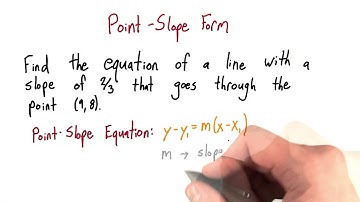 Point-Slope Form
Find the equation of a line with a
slope of 2/3 that goes through the
point (9,8).
Point-Slope Equation: y-y₁=m(x-x₁)
m → slope